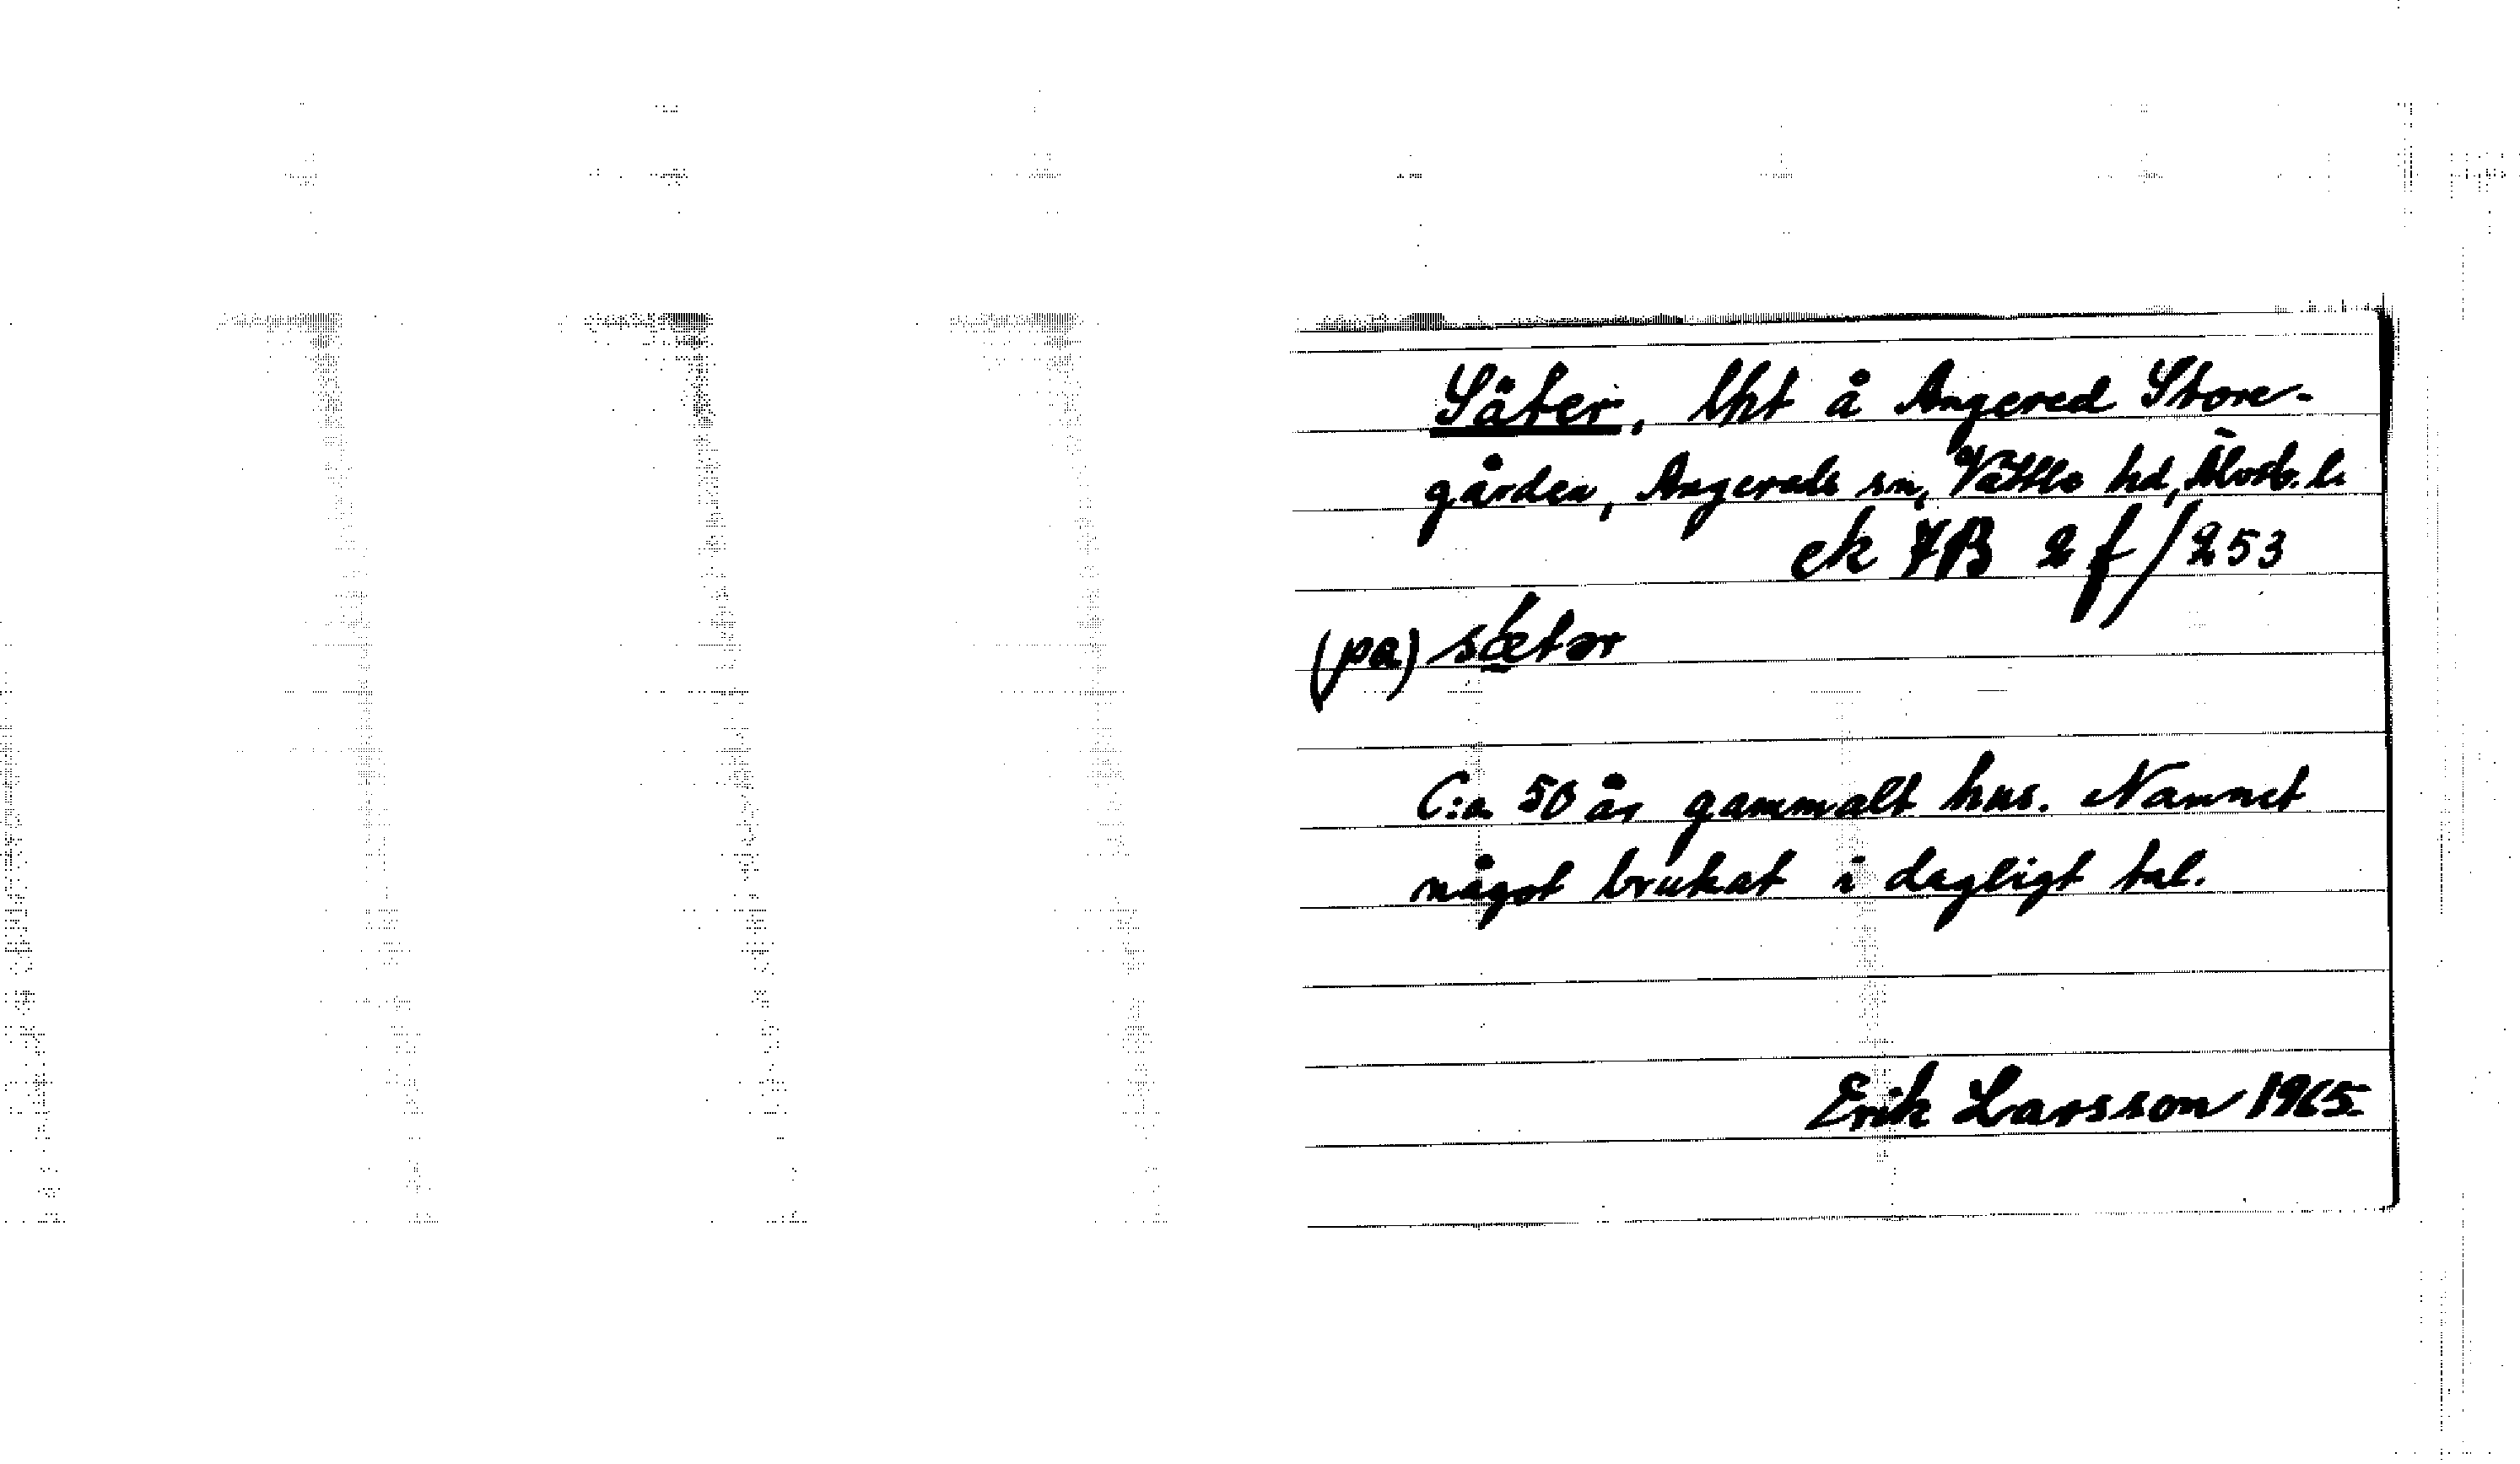 Säter, lht å Angered Store-
gården, Angereds sn, Vättle hd, Älvsb. l.
ek 7B 2 f/253
(pa) sætər
C:a 50 år gammalt hus. Namnet
något brukat i dagligt tal.
Erik Larsson 1965